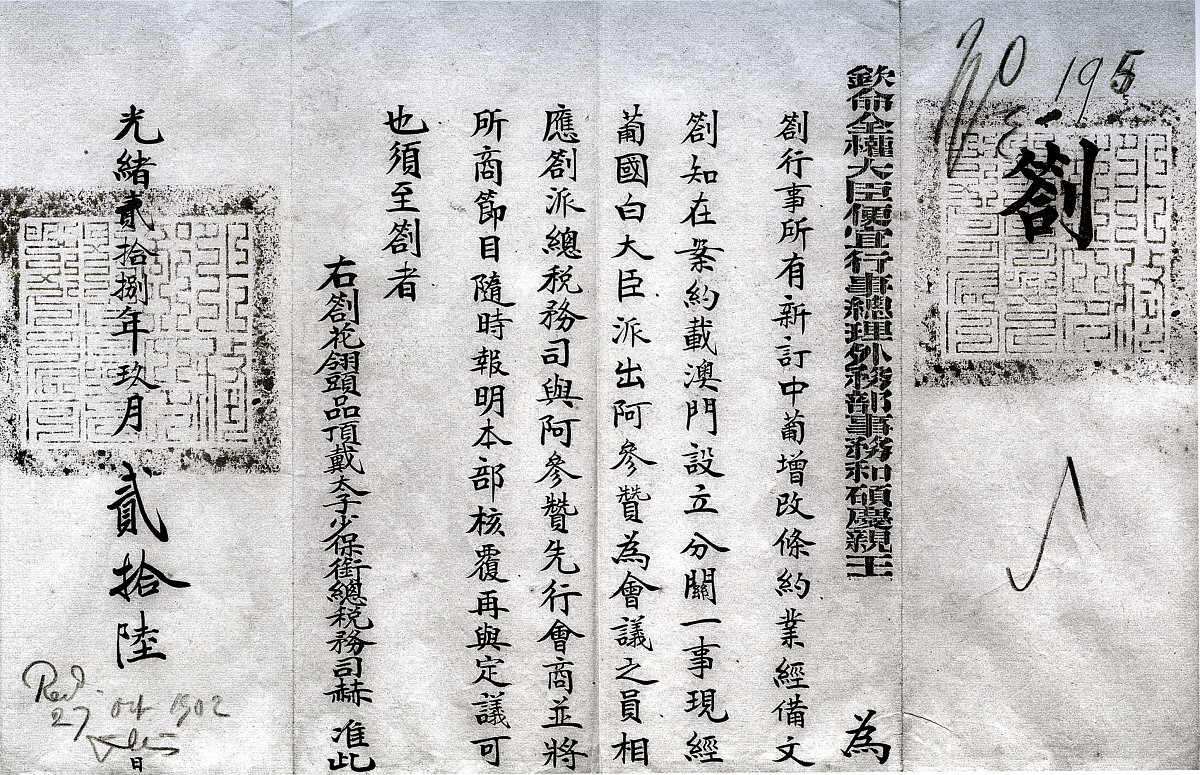 195
劄
欽命全權大臣便宜行事總理外務部事務和碩慶親王 為
劄行事所有新訂中葡增改條約業經備文
劄知在案約載澳門設立分關一事現經
葡國白大臣派出阿參贊為會議之員相
應劄派總稅務司與阿參贊先行會商並將
所商節目隨時報明本部核覆再與定議可
也須至劄者
右劄花翎頭品頂戴太子少保銜總稅務司赫 准此
光緒貳拾捌年玖月貳拾陸
日
Recd.
27 Oct 1902